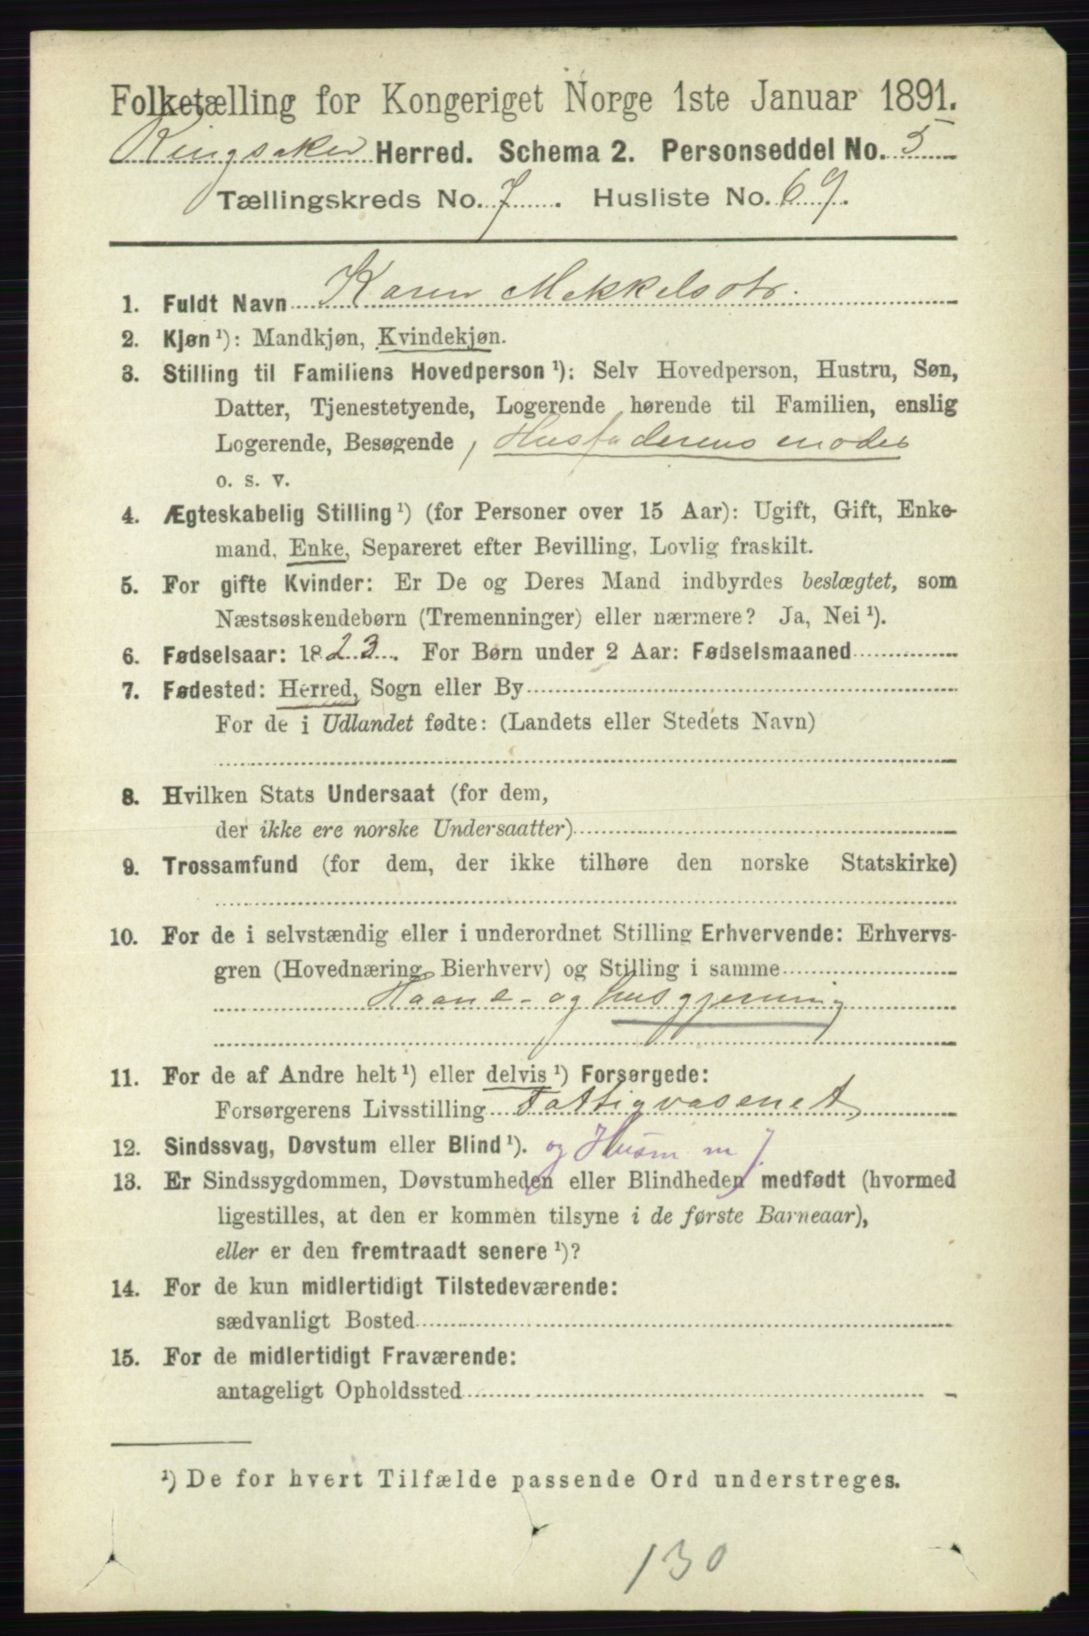 Folketælling for Kongeriget Norge 1ste Januar 1891.
Ringsaker Herred. Schema 2. Personseddel No. 5
Tællingskreds No. 7. Husliste No. 69.
1. Fuldt Navn Karen Mekkelsdtr.
2. Kjøn ¹): Mandkjøn, Kvindekjøn.
3. Stilling til Familiens Hovedperson ¹): Selv Hovedperson, Hustru, Søn,
Datter, Tjenestetyende, Logerende hørende til Familien, enslig
Logerende, Besøgende, Husfaderens moder
o. s. v.
4. Ægteskabelig Stilling ¹) (for Personer over 15 Aar): Ugift, Gift, Enke-
mand, Enke, Separeret efter Bevilling, Lovlig fraskilt.
5. For gifte Kvinder: Er De og Deres Mand indbyrdes beslægtet, som
Næstsøskendebørn (Tremenninger) eller nærmere? Ja, Nei ¹).
6. Fødselsaar: 1823. For Børn under 2 Aar: Fødselsmaaned
7. Fødested: Herred, Sogn eller By
For de i Udlandet fødte: (Landets eller Stedets Navn)
8. Hvilken Stats Undersaat (for dem,
der ikke ere norske Undersaatter)
9. Trossamfund (for dem, der ikke tilhøre den norske Statskirke)
10. For de i selvstændig eller i underordnet Stilling Erhvervende: Erhvervs-
gren (Hovednæring, Bierhverv) og Stilling i samme
Haand- og husgjerning
11. For de af Andre helt ¹) eller delvis ¹) Forsørgede:
Forsørgerens Livsstilling Fattigvæsenet
12. Sindssvag, Døvstum eller Blind ¹). og Husm m j.
13. Er Sindssygdommen, Døvstumheden eller Blindheden medfødt (hvormed
ligestilles, at den er kommen tilsyne i de første Barneaar),
eller er den fremtraadt senere ¹)?
14. For de kun midlertidigt Tilstedeværende:
sædvanligt Bosted
15. For de midlertidigt Fraværende:
antageligt Opholdssted
¹) De for hvert Tilfælde passende Ord understreges.
130